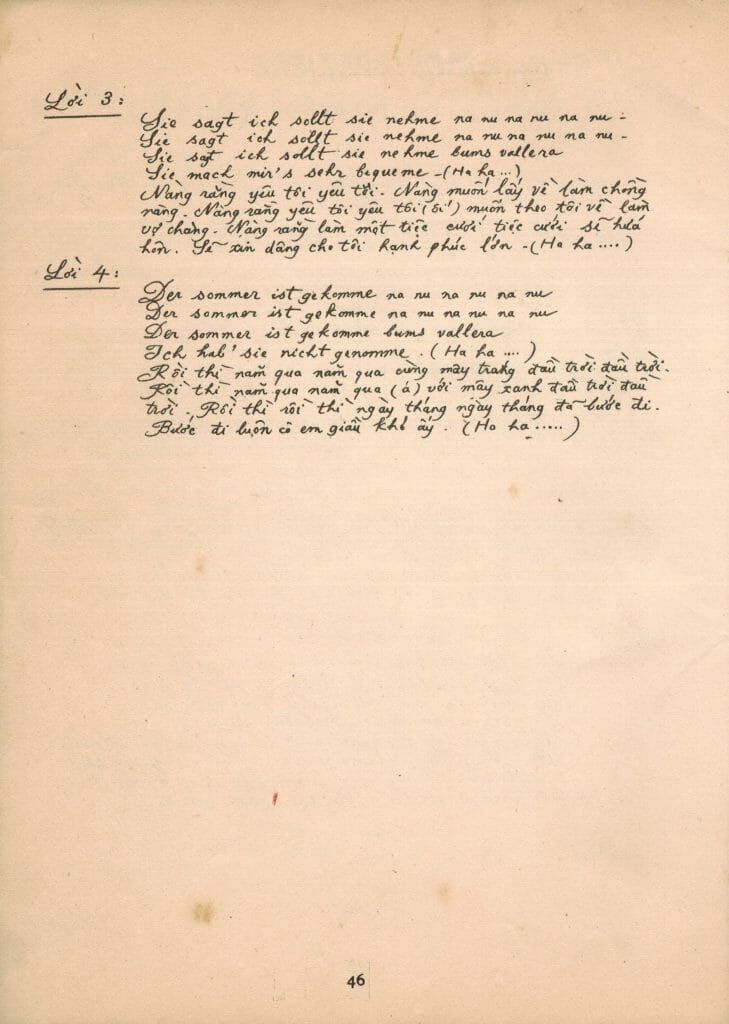 Lời 3:
Sie sagt ich sollt sie nehme na nu na nu na nu -
Sie sagt ich sollt sie nehme na nu na nu na nu -
Sie sagt ich sollt sie nehme bums vallera
Sie mach mir's sehr bequeme - (Ha ha ...)
Nàng rằng yêu tôi yêu tôi. Nàng muốn lấy về làm chồng
nàng. Nàng rằng yêu tôi yêu tôi (ối) muốn theo tôi về làm
vợ chàng. Nàng rằng làm một tiệc cưới tiệc cưới sẽ hứa
hôn. Sẽ xin dâng cho tôi hạnh phúc lớn - (Ha ha ....)
Lời 4:
Der sommer ist gekomme na nu na nu na nu
Der sommer ist gekomme na nu na nu na nu
Der sommer ist gekomme bums vallera
Ich hab' sie nicht genomme. (Ha ha ....)
Rồi thì năm qua năm qua cùng mây trắng đầu trời đầu trời.
Rồi thì năm qua năm qua (á) với mây xanh đầu trời đầu
trời. Rồi thì rồi thì ngày tháng ngày tháng đã bước đi.
Bước đi luôn cô em giầu khó ấy. (Ha ha .....)
46